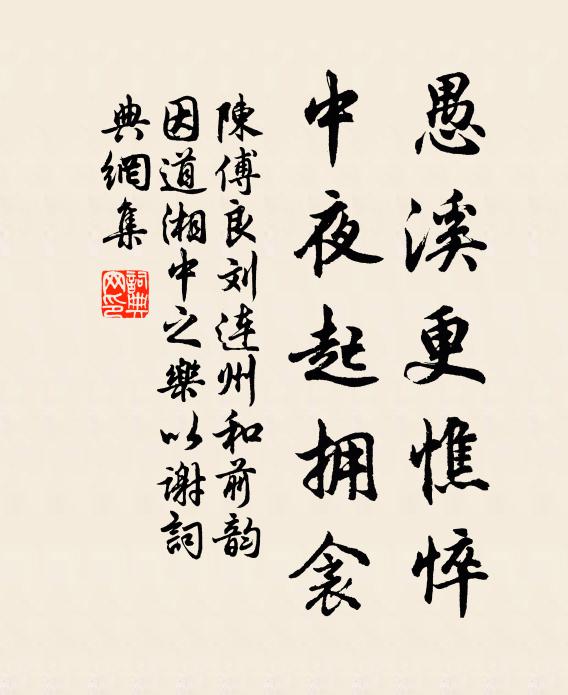 愚溪更憔悴
中夜起拥衾
陳傅良刘连州和前韵
因道湘中之樂以谢詞
典網集
詞典網印